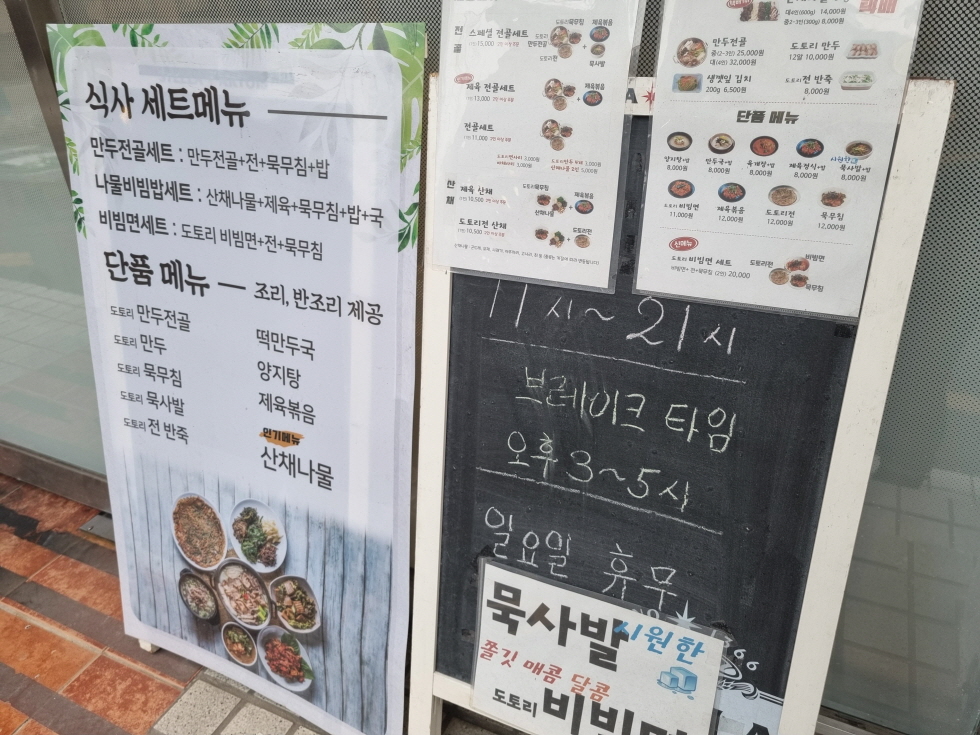 식사 세트메뉴
만두전골세트 : 만두전골+전+묵무침+밥
나물비빔밥세트 : 산채나물+제육+묵무침+밥+국
비빔면세트 : 도토리 비빔면+전+묵무침
단품 메뉴 — 조리, 반조리 제공
도토리 만두전골
도토리 만두
도토리 묵무침
도토리 묵사발
도토리 전 반죽
떡만두국
양지탕
제육볶음
인기메뉴
산채나물
전골
스페셜 전골세트
15,000
도토리묵무침
제육볶음
만두전골
도토리전
묵사발
제육 전골세트
13,000
전골세트
11,000
산채
제육 산채
10,500
도토리묵무침
제육볶음
산채나물
도토리전 산채
10,500
택배
대4인(600g) 14,000원
중2~3인(300g) 8,000원
만두전골
중(2~3인) 25,000원
대(4인) 32,000원
도토리 만두
12알 10,000원
생깻잎 김치
200g 6,500원
도토리전 반죽
8,000원
단품 메뉴
양지탕+밥
8,000원
만두국+밥
8,000원
육개장+밥
8,000원
제육정식+밥
8,000원
시원한
묵사발+밥
8,000원
도토리 비빔면
11,000원
제육볶음
12,000원
도토리전
12,000원
묵무침
12,000원
신메뉴
도토리 비빔면 세트
비빔면+전+묵무침 (2인) 20,000
도토리전
비빔면
묵무침
11시~21시
브레이크 타임
오후 3~5시
일요일 휴무
묵사발 시원한
쫄깃 매콤 달콤
도토리